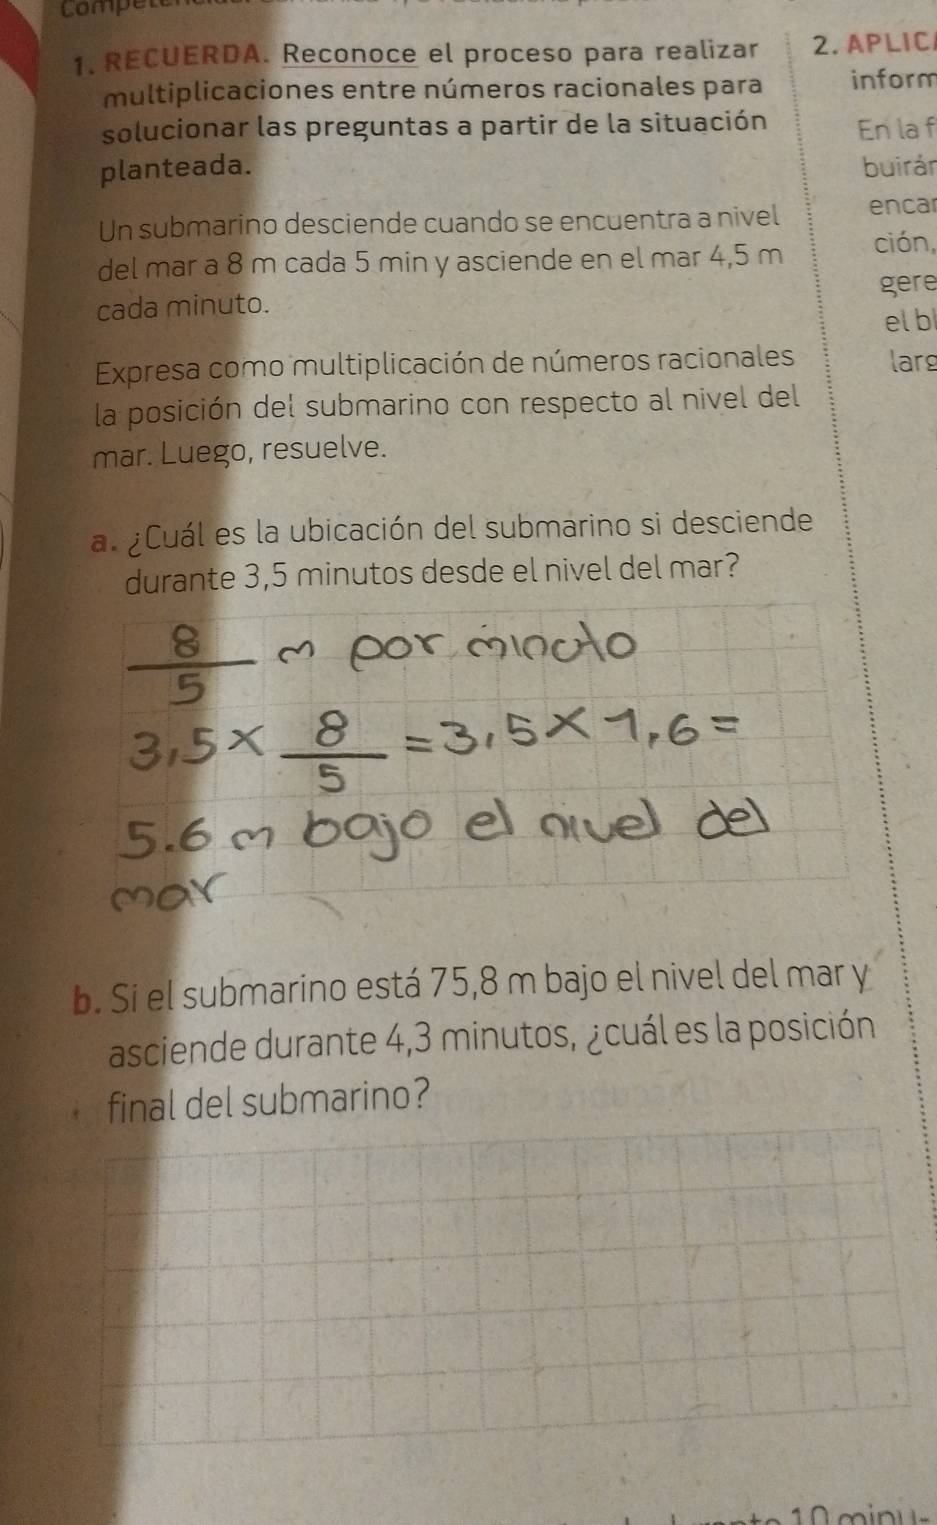 1. RECUERDA. Reconoce el proceso para realizar
multiplicaciones entre números racionales para
solucionar las preguntas a partir de la situación
planteada.
Un submarino desciende cuando se encuentra a nivel
del mar a 8 m cada 5 min y asciende en el mar 4,5 m
cada minuto.
Expresa como multiplicación de números racionales
la posición del submarino con respecto al nivel del
mar. Luego, resuelve.
a. ¿Cuál es la ubicación del submarino si desciende
durante 3,5 minutos desde el nivel del mar?
8/5 m por minuto
3,5 x 8/5 = 3,5 x 1,6 =
5.6 m bajo el nivel del
mar
b. Si el submarino está 75,8 m bajo el nivel del mar y
asciende durante 4,3 minutos, ¿cuál es la posición
final del submarino?
10 minu-
2. APLICA
inform
En la f
buirán
encar
ción,
gere
el bl
larg